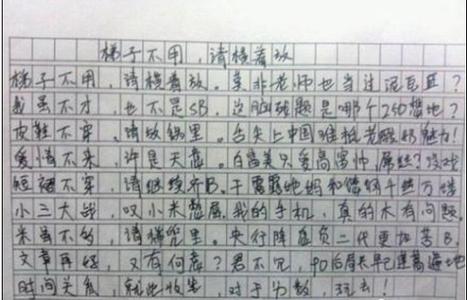 梯子不用,请横着放
梯子不用,请横着放。莫非老师也当过泥瓦匠?
我虽不才,也不是SB,这脑残题是哪个250想地?
皮鞋不穿,请放锅里。舌尖上中国难抵老酸奶魅力!
爱情不来,许是天意。白富美只爱高富帅,屌丝?没戏
短裙不穿,请继续齐B。干露露她妈和你妈千丝万缕
小三大战,叹小米憋屈。我的手机,真的木有问题。
米虽不多,请揣兜里。央行降息负二代更加苦B。
文章再好,又有何意?君不见,90后眉头早已连高地
时间关系,就此收笔,对于分数,